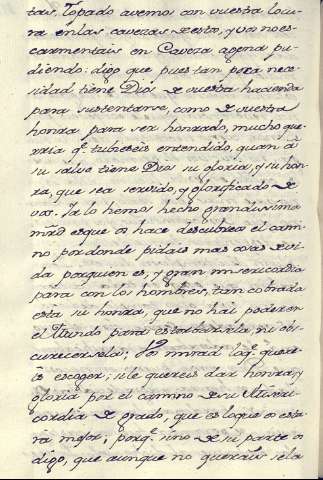 tais, Topado avemos con vuestra locu
ra en las cavezas de esto, y vos no es
carmentais en Caveza agena pu
diendo. digo que pues tan poca nece
sidad tiene Dios de vuestra hacienda
para sustentarse, como de vuestra
honra para ser honrado, mucho que
rria q.e tubieseis entendido, quan â
su salvo tiene Dios su gloria, y su hon
ra, que sea servido, y glorificado de
vos. Ya lo hemos hecho grandissima
mrd es que os hace descubrir el cami
no por donde pidais mas cosas de vi
da por quien es, y gran misericordia
para con los hombres, tan cobrada
esta su honra, que no hai poder en
el Mundo para estorvarsela, ni obs
curecersela; mirad loq.e quere
is escoger; si le quereis dar honra, y
gloria por el camino de su Miseri
cordia de grado, que es loque os esta
ra mejor; porq.e sino de su parte os
digo, que aunque no querais sela